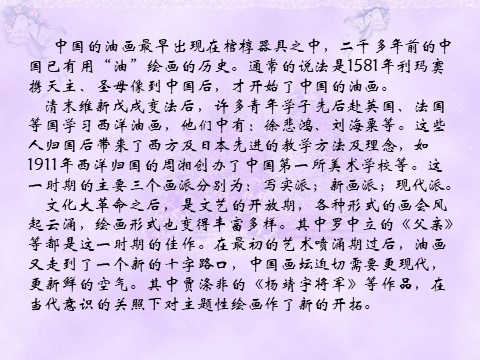 中国的油画最早出现在棺椁器具之中，二千多年前的中
国已有用“油”绘画的历史。通常的说法是1581年利玛窦
携天主、圣母像到中国后，才开始了中国的油画。
清末维新戊戌变法后，许多青年学子先后赴英国、法国
等国学习西洋油画，他们中有：徐悲鸿、刘海粟等。这些
人归国后带来了西方及日本先进的教学方法及理念，如
1911年西洋归国的周湘创办了中国第一所美术学校等。这
一时期的主要三个画派分别为：写实派；新画派；现代派。
文化大革命之后，是文艺的开放期，各种形式的画会风
起云涌，绘画形式也变得丰富多样。其中罗中立的《父亲》
等都是这一时期的佳作。在最初的艺术喷涌期过后，油画
又走到了一个新的十字路口，中国画坛迫切需要更现代，
更新鲜的空气。其中贾涤非的《杨靖宇将军》等作品，在
当代意识的关照下对主题性绘画作了新的开拓。